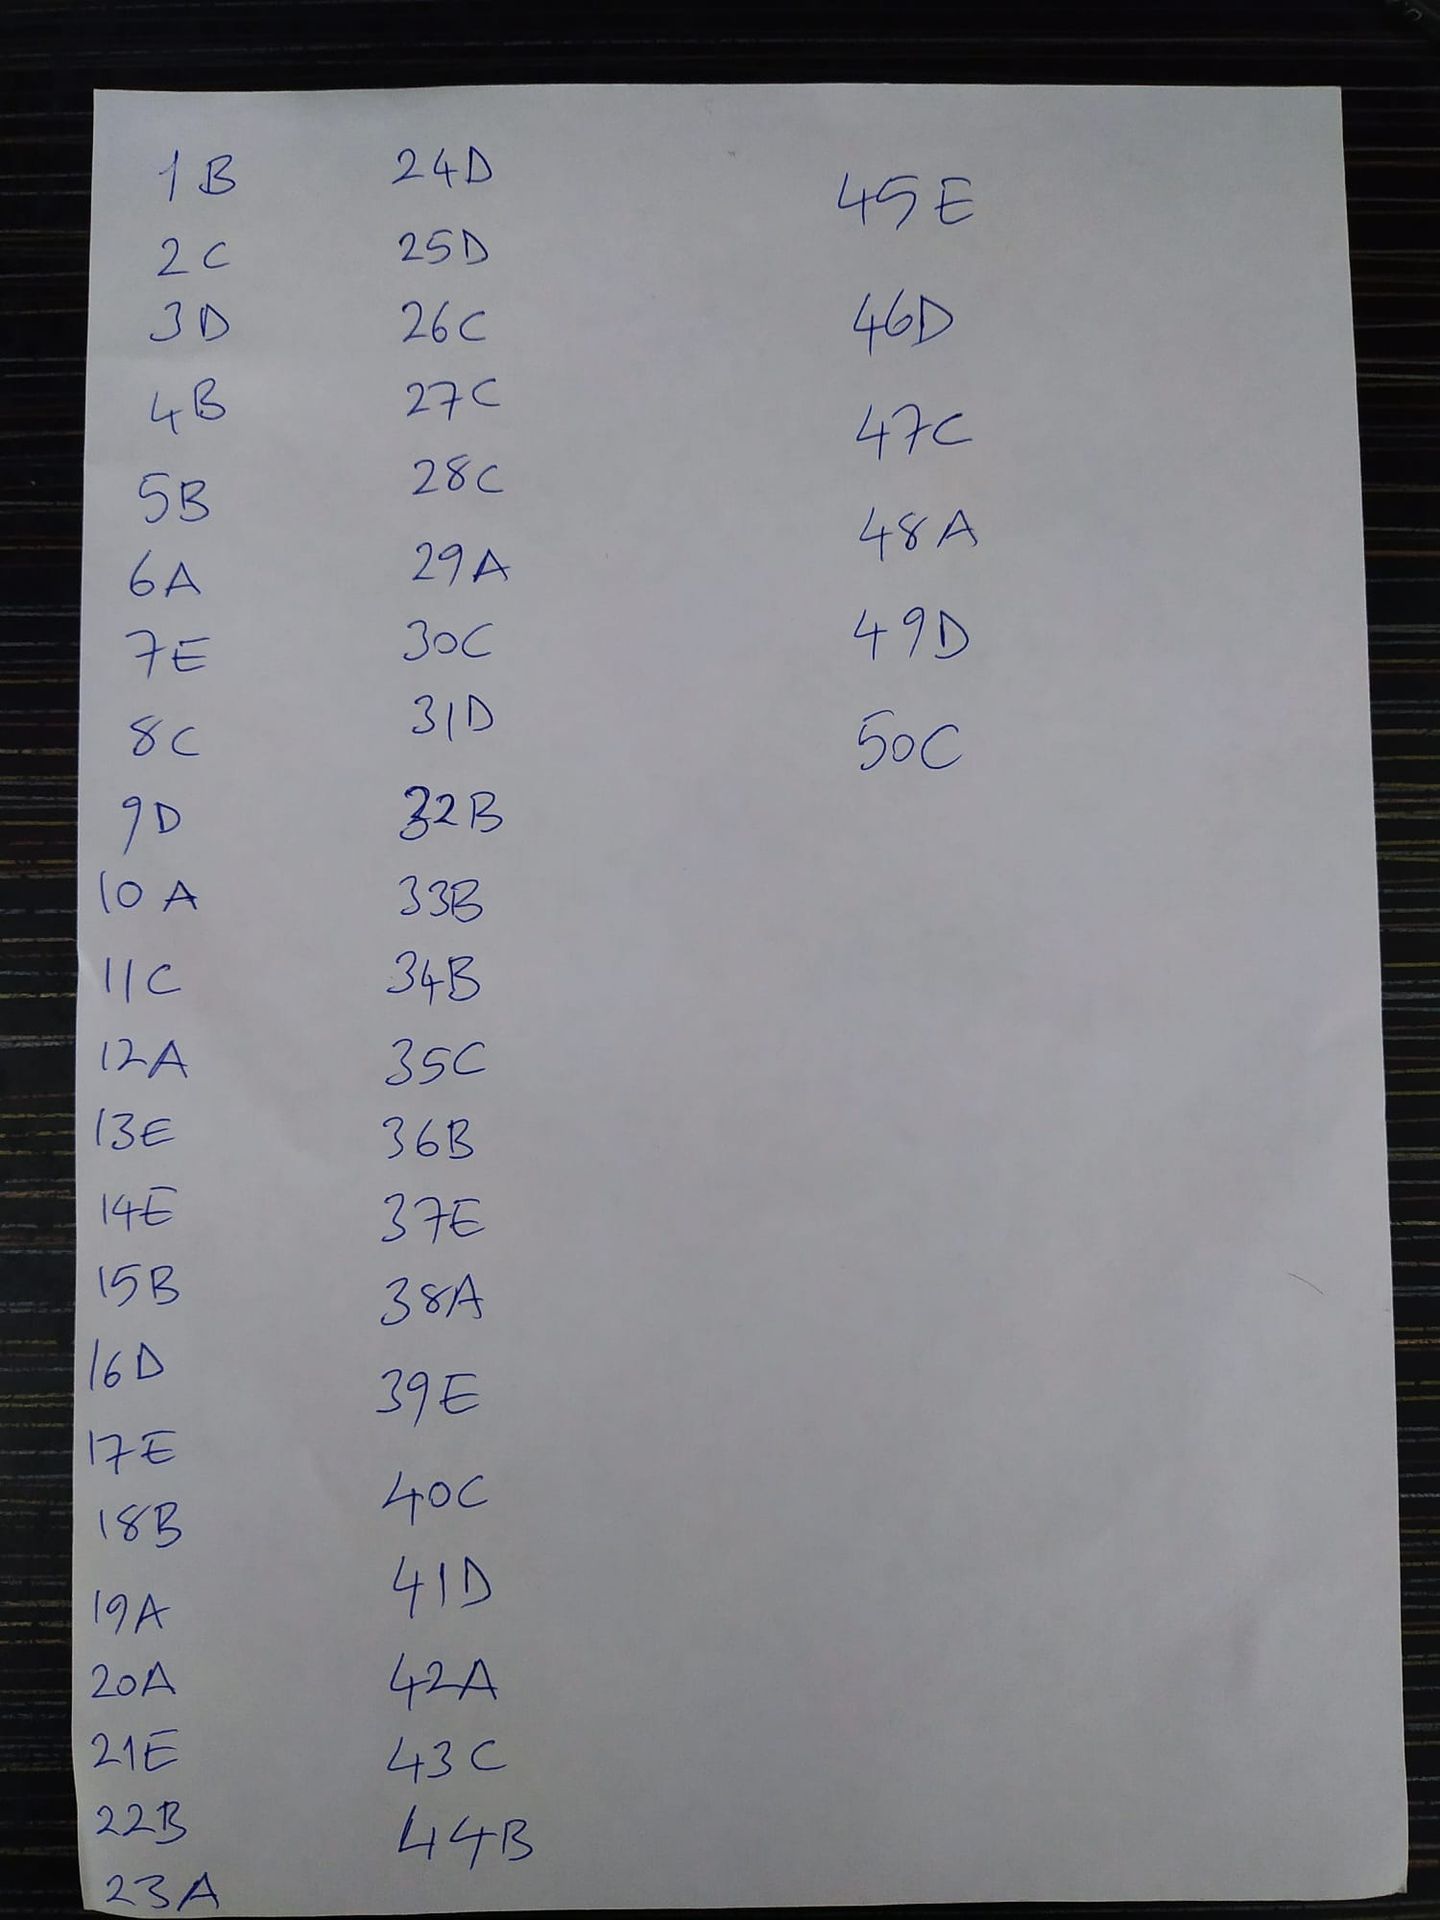 1B
2C
3D
4B
5B
6A
7E
8C
9D
10A
11C
12A
13E
14E
15B
16D
17E
18B
19A
20A
21E
22B
23A
24D
25D
26C
27C
28C
29A
30C
31D
32B
33B
34B
35C
36B
37E
38A
39E
40C
41D
42A
43C
44B
45E
46D
47C
48A
49D
50C